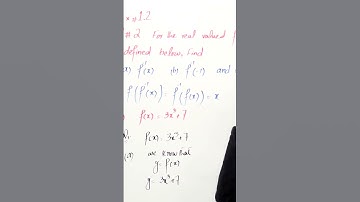 # 1.2
# 2 For the real valued
defined below, Find
f⁻¹(x) (b) f⁻¹(-1) and
f(f⁻¹(x)) = f⁻¹(f(x)) = x
f(x) = 3x³+7
f(x) = 3x³+7
we know that
y = f(x)
y = 3x³+7